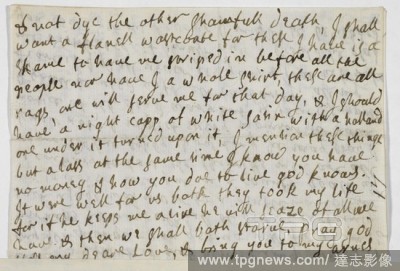 & not dye the other shamefull death, I shall
want a flanell wastcoate for these I have is a
shame to have me striped in before all the
people nor have I a whole shirt, these are all
rags, one will serve me for that day, & I should
have a night capp of white satin with a holland
one under it turned upon it, I mention these things
but alass at the same time I know you have
no money & how you doe to live god knows.
It were well for us both they took my life
for if he keeps me alive he will seaze of all we
have, & then we shall both starve, now god
my deare Love, & bring you to my armes
www.tpgnews.com/ 達志影像